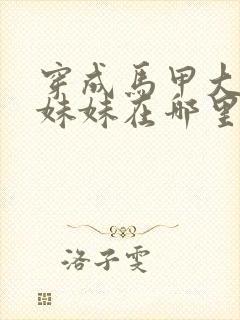 穿成馬甲大
妹妹在哪里
洛子雯